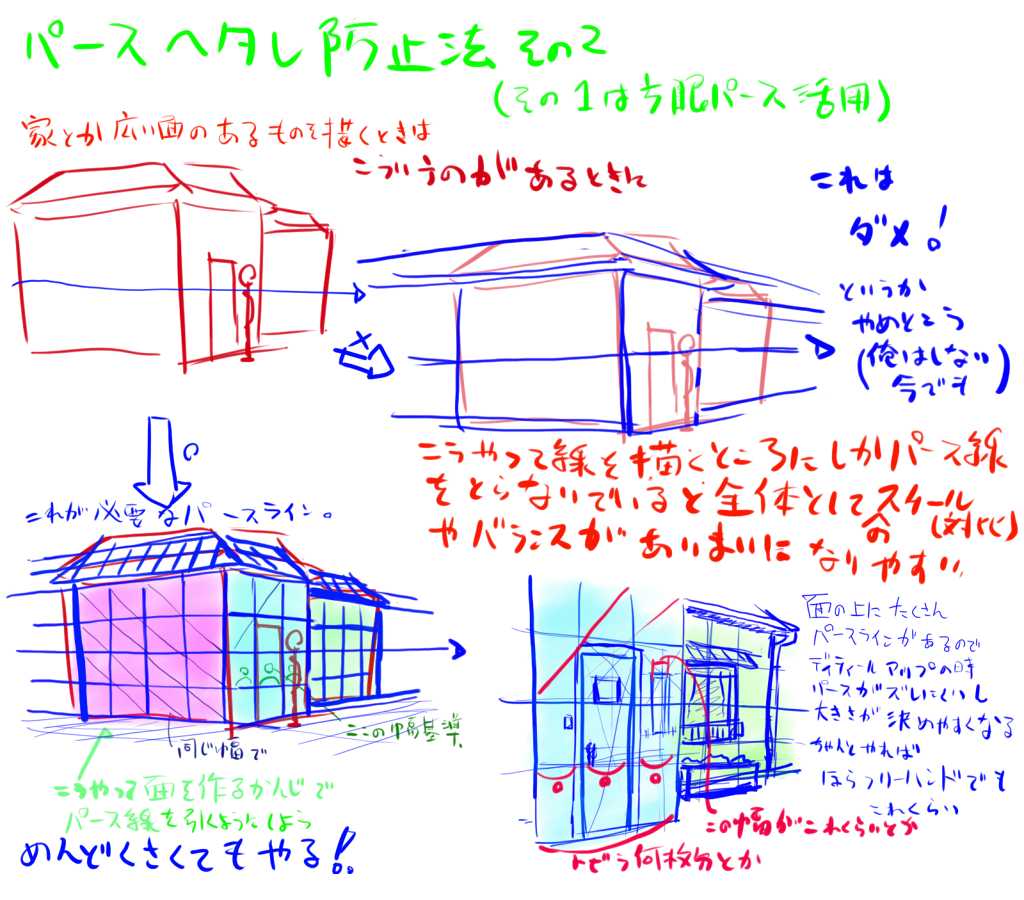 パースヘタレ防止法 その2
(その1は方眼パース活用)
家とか広い面のあるものを描くときは
こういうのがあるときに
これは
ダメ!
というか
やめとこう
(俺はしない
今でも)
こうやって線を描くところにしかパース線
をとらないでいると全体としてスケール
(対比)
やバランスがあいまいになりやすい
これが必要なパースライン。
面の上にたくさん
パースラインがあるので
ディティールアップの時
パースがズレにくいし
大きさが決めやすくなる
ちゃんとやれば
ほらフリーハンドでも
これくらい
ここの幅基準
同じ幅で
こうやって面を作るかんじで
パース線を引くようにしよう
めんどくさくてもやる!!
この幅がこれくらいとか
ドが何枚分とか